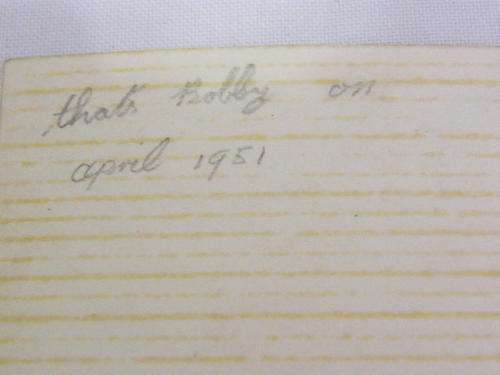 that's Bobby on
april 1951